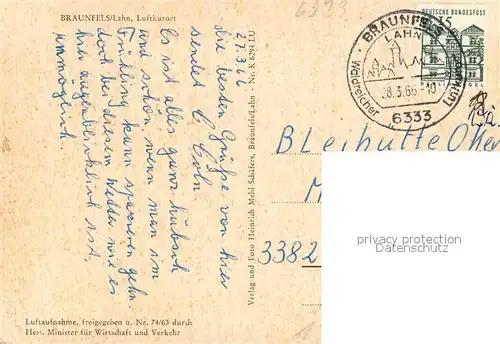 BRAUNFELS/Lahn, Luftkurort
27.3.66
die besten Grüße von hier
sendet
Es ist alles ganz hübsch
und schön, wenn man im
Frühling kann spazieren gehn.
doch bei diesem Wetter wie es
hier augenblicklich ist,
unmöglich.
Luftaufnahme, freigegeben u. Nr. 74/63 durch
Hess. Minister für Wirtschaft und Verkehr
Verlag und Foto Heinrich Mehl-Schäfers, Braunfels/Lahn · Nr. K 6294 LU
6333
DEUTSCHE BUNDESPOST
15
BRAUNFELS
LAHN
28.3.66-10
Waldreicher Luftkurort
6333
Bleihütte
3382
privacy protection